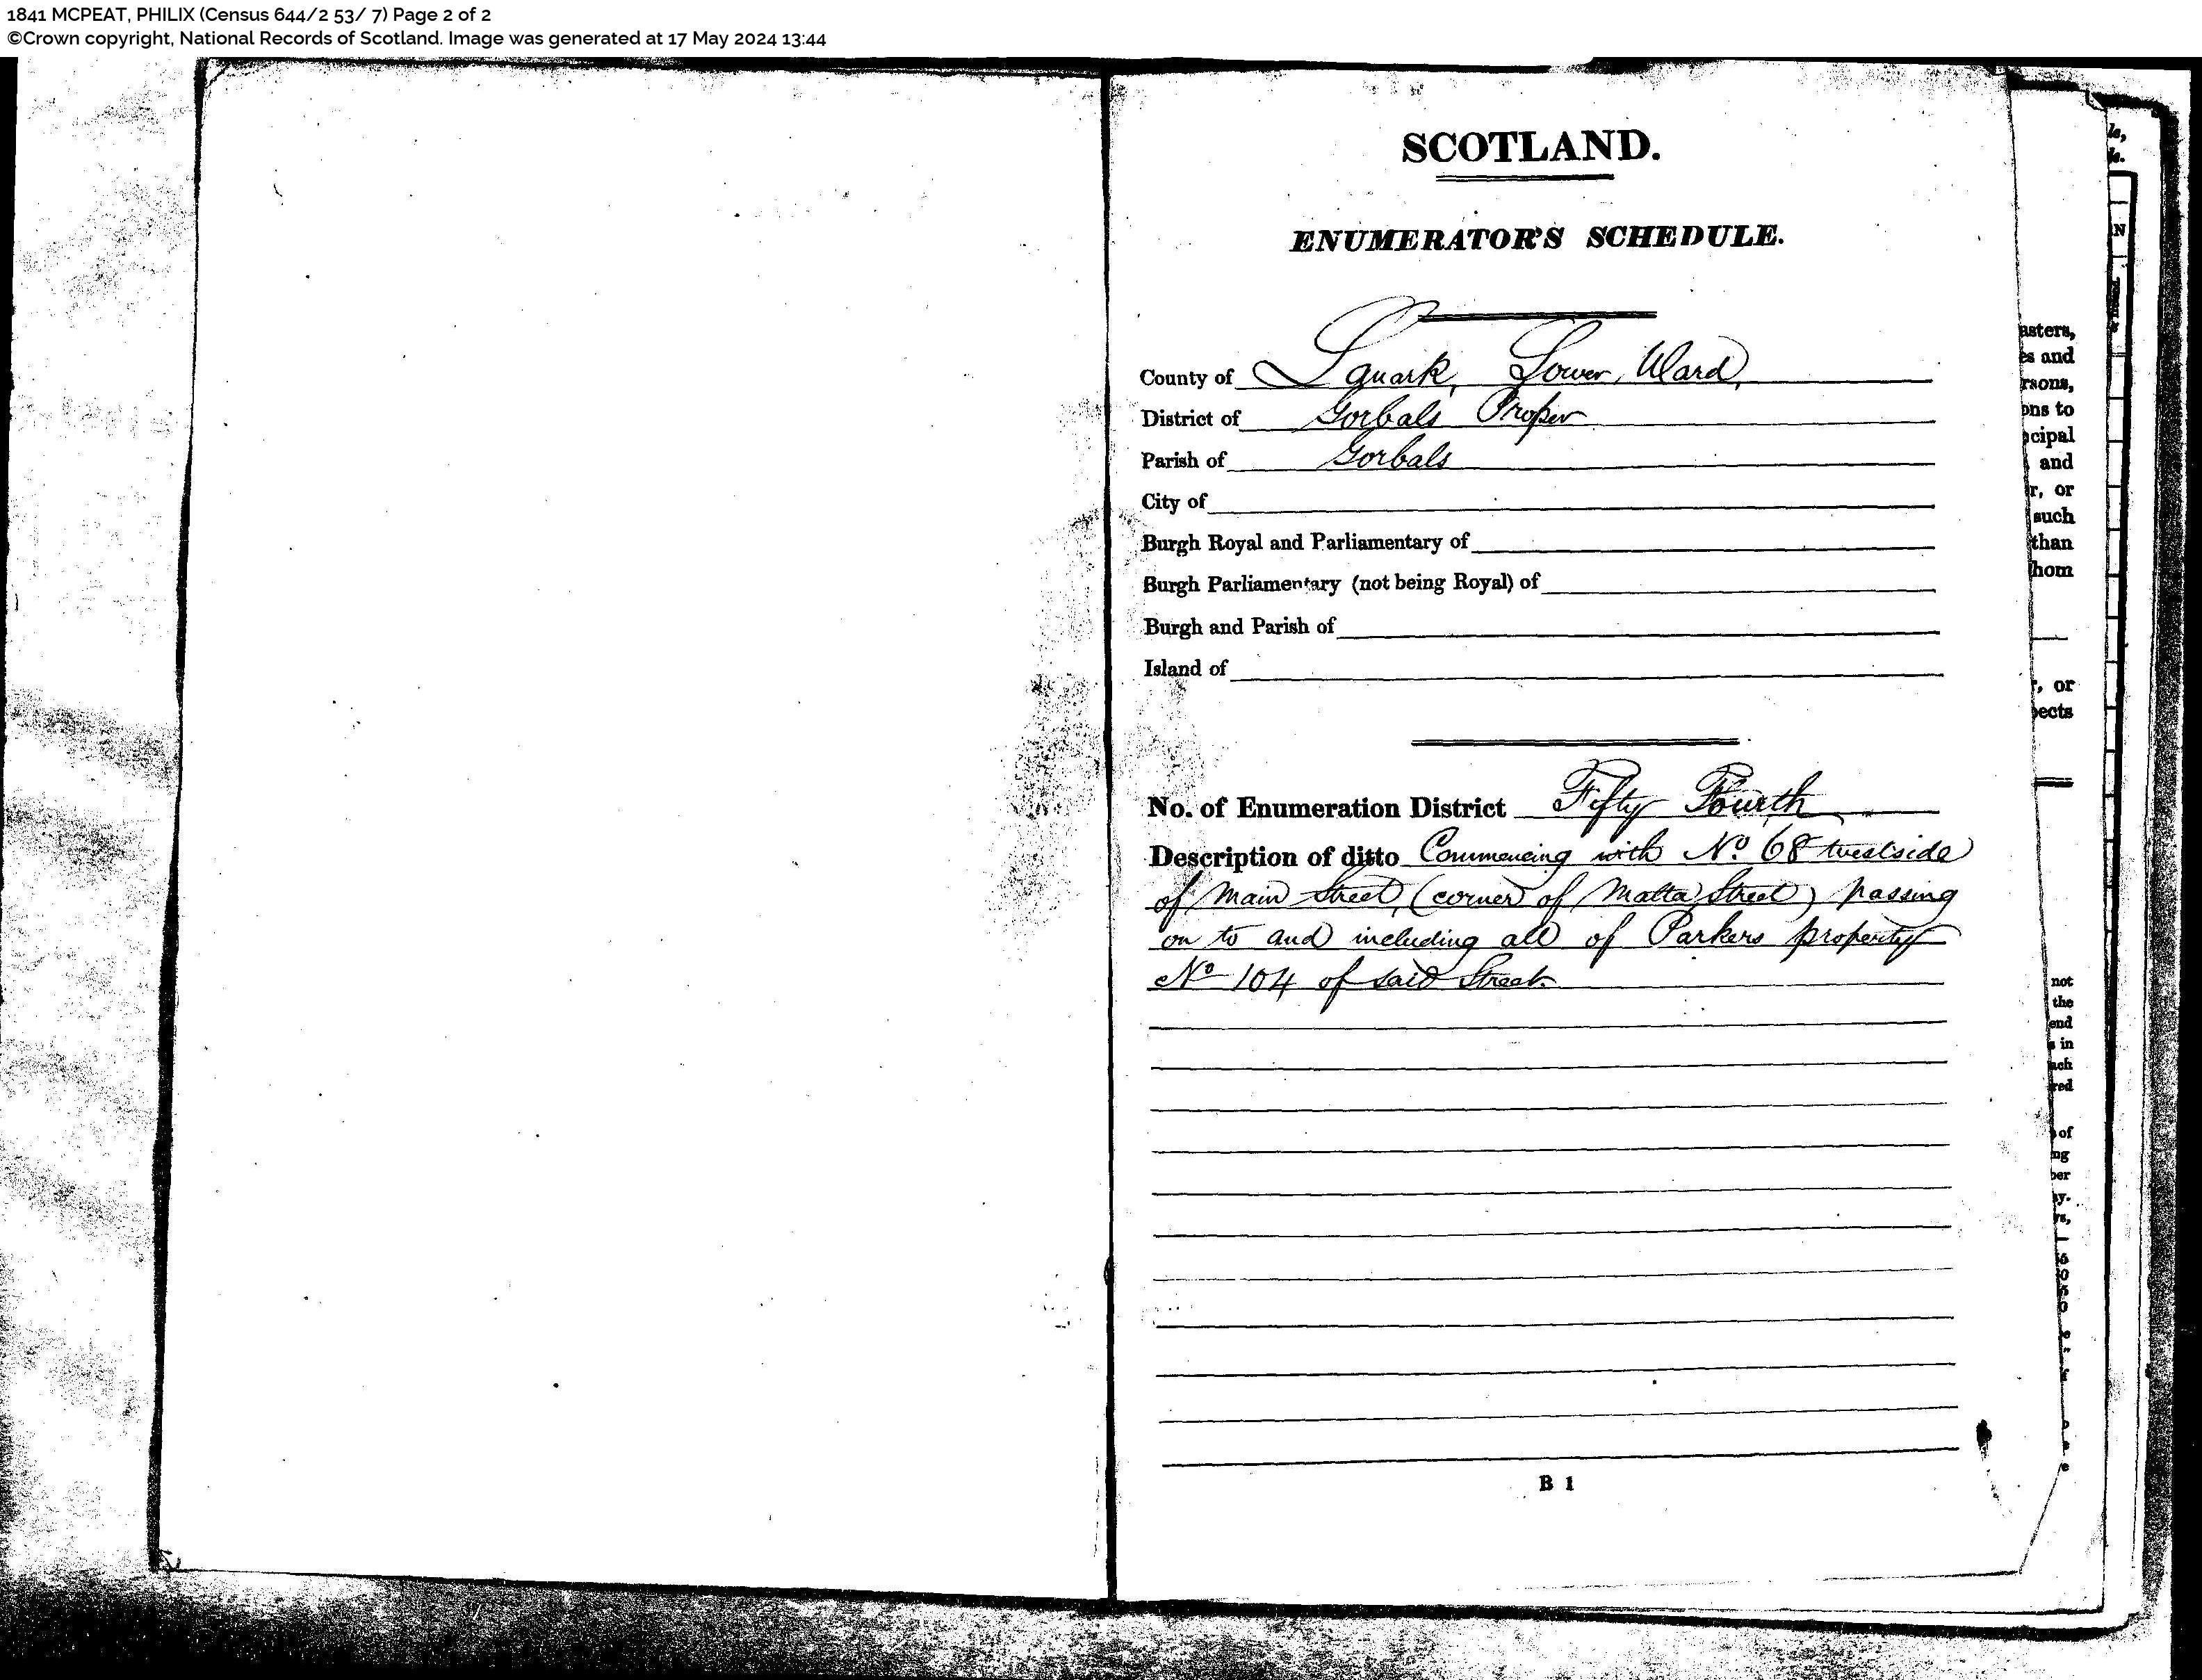 1841 MCPEAT, PHILIX (Census 644/2 53/ 7) Page 2 of 2
©Crown copyright, National Records of Scotland. Image was generated at 17 May 2024 13:44
SCOTLAND.
ENUMERATOR'S SCHEDULE.
County of Lanark, Lower Ward,
District of Gorbals Proper
Parish of Gorbals
City of
Burgh Royal and Parliamentary of
Burgh Parliamentary (not being Royal) of
Burgh and Parish of
Island of
No. of Enumeration District Fifty Fourth
Description of ditto Commencing with No 68 westside
of Main Street, (corner of Malta Street) passing
on to and including all of Parkers property
No 104 of said Street.
B 1
asters,
es and
rsons,
ons to
cipal
and
r, or
such
than
hom
r, or
pects
not
the
end
in
ach
red
of
ng
per
ay.